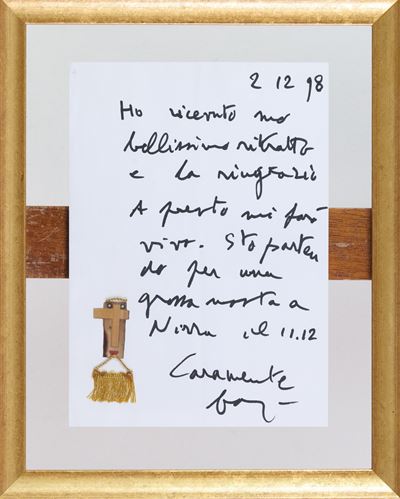 2 12 98
Ho ricevuto mo
bellissimo ritratto
e la ringrazio
A presto mi farò
vivo. Sto parten
do per una
grossa mostra a
Nizza il 11.12
Caramente